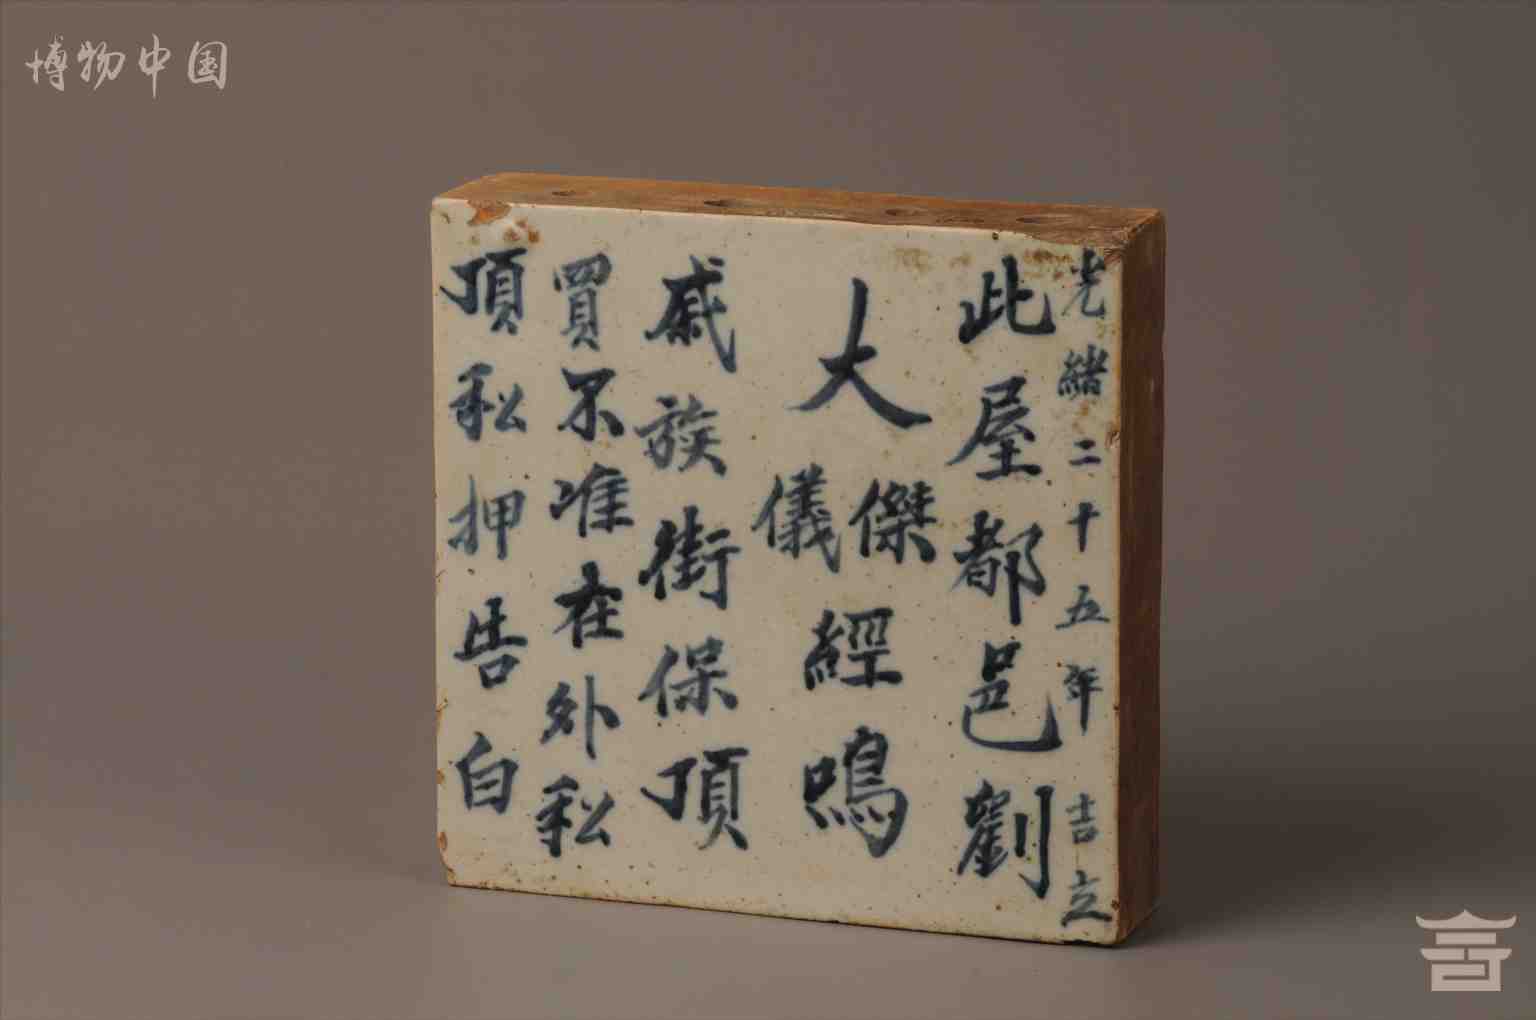 博物中国
光緒二十五年吉立
此屋都邑劉
大傑儀經鳴
戚族街保頂
買不准在外私
頂私押告白